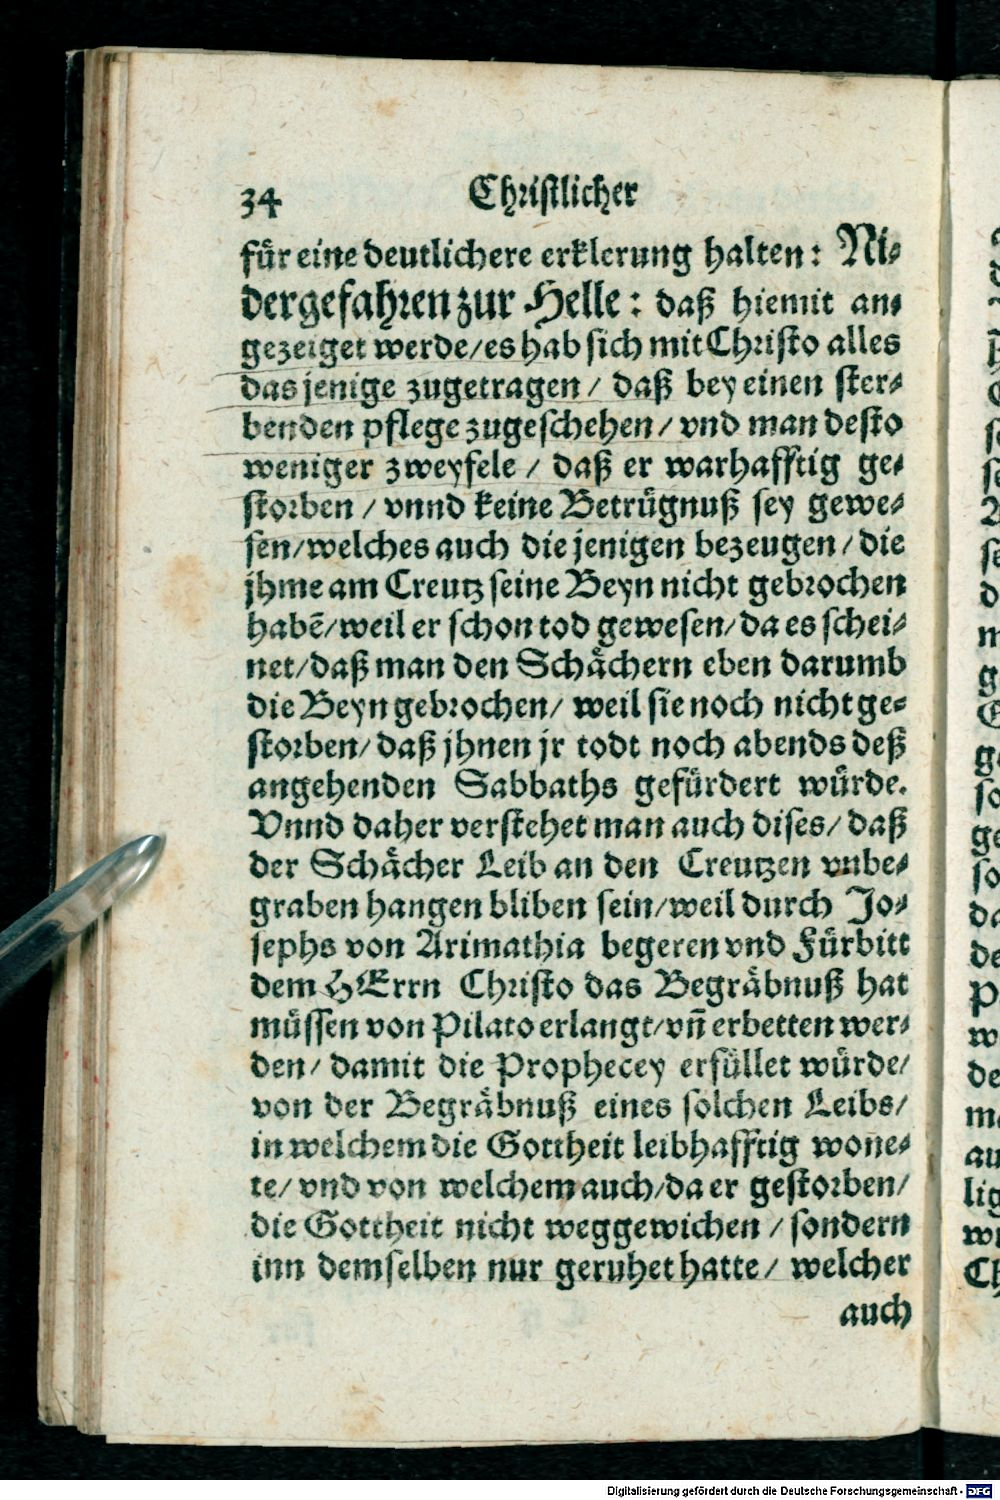 34 Christlicher
für eine deutlichere erklerung halten: Ni-
dergefahren zur Helle: daß hiemit an-
gezeiget werde/es hab sich mit Christo alles
das jenige zugetragen/ daß bey einen ster-
benden pflege zugeschehen/ vnd man desto
weniger zweyfele/ daß er warhafftig ge-
storben/ vnnd keine Betrügnuß sey gewe-
sen/welches auch die jenigen bezeugen/die
jhme am Creutz seine Beyn nicht gebrochen
habē/weil er schon tod gewesen/da es schei-
net/daß man den Schächern eben darumb
die Beyn gebrochen/ weil sie noch nicht ge-
storben/daß jhnen jr todt noch abends deß
angehenden Sabbaths gefürdert würde.
Vnnd daher verstehet man auch dises/ daß
der Schächer Leib an den Creutzen vnbe-
graben hangen bliben sein/weil durch Jo-
sephs von Arimathia begeren vnd Fürbitt
dem HErrn Christo das Begräbnuß hat
müssen von Pilato erlangt/vn̄ erbetten wer-
den/ damit die Prophecey erfüllet würde/
von der Begräbnuß eines solchen Leibs/
in welchem die Gottheit leibhafftig wone-
te/ vnd von welchem auch/da er gestorben/
die Gottheit nicht weggewichen/ sondern
inn demselben nur geruhet hatte/ welcher
auch
Digitalisierung gefördert durch die Deutsche Forschungsgemeinschaft - DFG